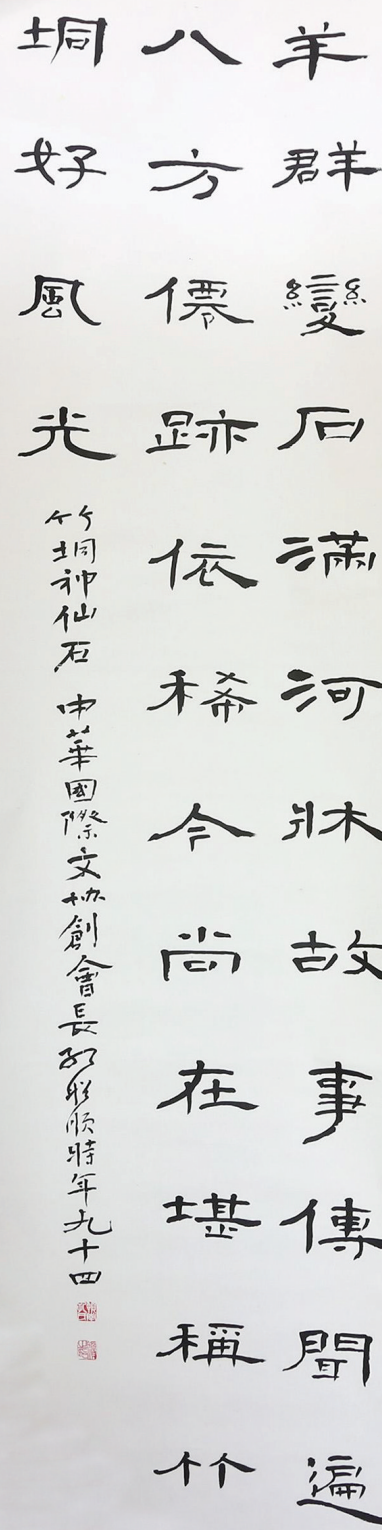 羊群變石滿河牀故事傳聞遍
八方僊跡依稀今尚在堪稱竹
垌好風光
竹垌神仙石 中華國際文协創會長 順時年九十四